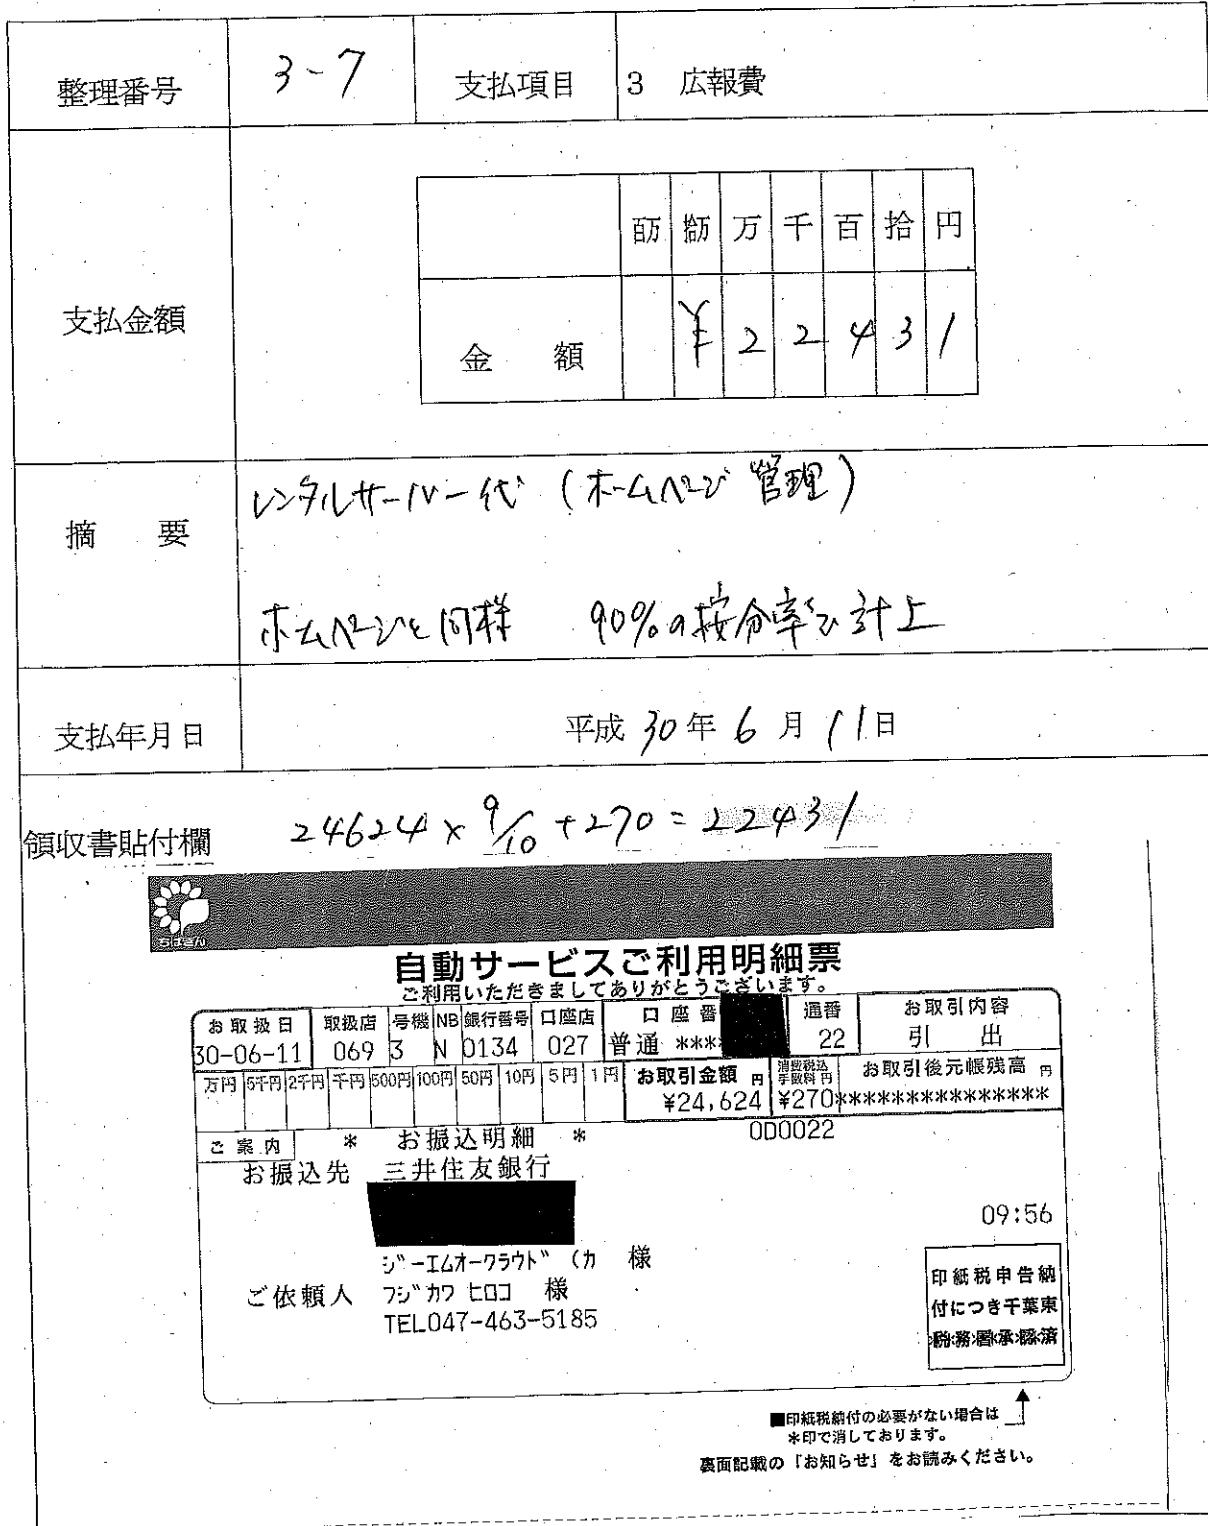 整理番号 3-7 支払項目 3 広報費
百万 拾万 万 千 百 拾 円
支払金額
金 額 ¥ 2 2 4 3 1
レンタルサーバー代 (ホームページ管理)
摘 要
ホームページと同様 90%の按分率で計上
支払年月日 平成 30 年 6 月 11 日
領収書貼付欄 24624 × 9/10 + 270 = 22431
ちばぎん
自動サービスご利用明細票
ご利用いただきましてありがとうございます。
お取扱日 取扱店 号機 NB 銀行番号 口座店 口座番 通番 お取引内容
30-06-11 069 3 N 0134 027 普通 **** 22 引 出
万円 5千円 2千円 千円 500円 100円 50円 10円 5円 1円 お取引金額 円 消費税込手数料 円 お取引後元帳残高 円
¥24,624 ¥270 ***************
ご案内 * お振込明細 * 0D0022
お振込先 三井住友銀行
09:56
ジーエムオークラウド (カ 様
ご依頼人 フジカワ ヒロコ 様
TEL047-463-5185
印紙税申告納
付につき千葉東
税務署承認済
■印紙税納付の必要がない場合は
*印で消しております。
裏面記載の「お知らせ」をお読みください。